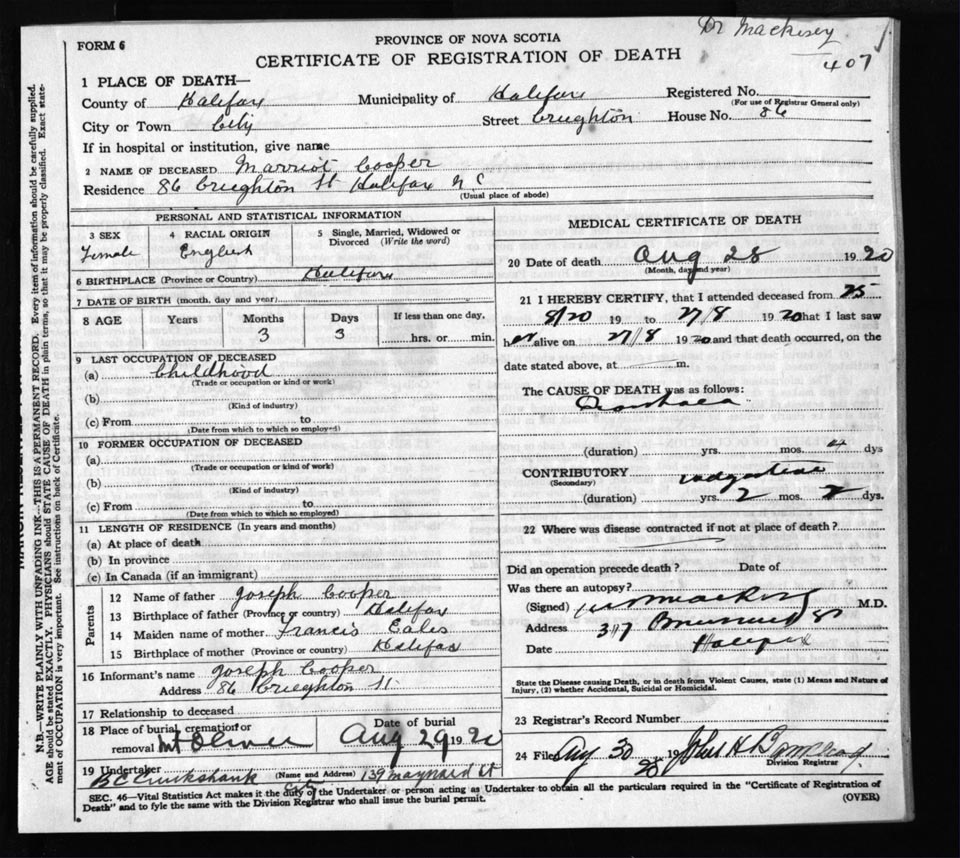 Dr Mackesey
407
FORM 6
PROVINCE OF NOVA SCOTIA
CERTIFICATE OF REGISTRATION OF DEATH
1 PLACE OF DEATH—
County of Halifax Municipality of Halifax Registered No.
(For use of Registrar General only)
City or Town City Street Creighton House No. 86
If in hospital or institution, give name
2 NAME OF DECEASED Marriot Cooper
Residence 86 Creighton St Halifax N S
(Usual place of abode)
PERSONAL AND STATISTICAL INFORMATION
3 SEX 4 RACIAL ORIGIN 5 Single, Married, Widowed or Divorced (Write the word)
Female English
6 BIRTHPLACE (Province or Country) Halifax
7 DATE OF BIRTH (month, day and year)
8 AGE Years Months Days If less than one day,
3 3 hrs. or min.
9 LAST OCCUPATION OF DECEASED
(a) Childhood
(Trade or occupation or kind or work)
(b)
(Kind of industry)
(c) From to
(Date from which to which so employed)
10 FORMER OCCUPATION OF DECEASED
(a)
(Trade or occupation or kind of work)
(b)
(Kind of industry)
(c) From to
(Date from which to which so employed)
11 LENGTH OF RESIDENCE (In years and months)
(a) At place of death
(b) In province
(c) In Canada (if an immigrant)
Parents
12 Name of father Joseph Cooper
13 Birthplace of father (Province or country) Halifax
14 Maiden name of mother Francis Eales
15 Birthplace of mother (Province or country) Halifax
16 Informant's name Joseph Cooper
Address 86 Creighton St.
17 Relationship to deceased
18 Place of burial cremation or removal Mt Olivet Date of burial Aug 29 1920
19 Undertaker B C Cruikshank (Name and Address) 139 Maynard St
City
MEDICAL CERTIFICATE OF DEATH
20 Date of death Aug 28 1920
(Month, day and year)
21 I HEREBY CERTIFY, that I attended deceased from 25
8/20 19 to 27/8 1920 that I last saw
her alive on 27/8 1920 and that death occurred, on the
date stated above, at m.
The CAUSE OF DEATH was as follows:
Diarrhaea
(duration) yrs. mos. 4 dys
CONTRIBUTORY
(Secondary)
(duration) yrs. 2 mos. 2 dys.
22 Where was disease contracted if not at place of death?
Did an operation precede death? Date of
Was there an autopsy?
(Signed) M.D.
Address 347 Brunswick St
Date Halifax
State the Disease causing Death, or in death from Violent Causes, state (1) Means and Nature of
Injury, (2) whether Accidental, Suicidal or Homicidal.
23 Registrar's Record Number
24 Filed Aug 30 19 20 John H
Division Registrar
SEC. 46—Vital Statistics Act makes it the duty of the Undertaker or person acting as Undertaker to obtain all the particulars required in the "Certificate of Registration of
Death" and to fyle the same with the Division Registrar who shall issue the burial permit. (OVER)
N.B.—WRITE PLAINLY WITH UNFADING INK—THIS IS A PERMANENT RECORD. Every item of information should be carefully supplied.
AGE should be stated EXACTLY. PHYSICIANS should STATE CAUSE OF DEATH in plain terms, so that it may be properly classified. Exact state-
ment of OCCUPATION is very important. See instructions on back of Certificate.